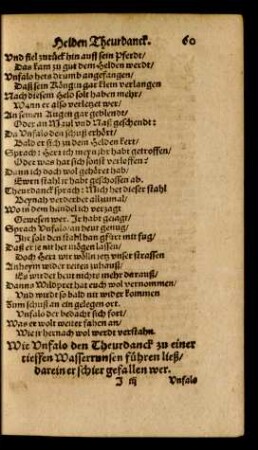 Helden Theurdanck. 60
Vnd fiel zurück hin auff sein Pferdt/
Das kam zu gut dem Helden werdt/
Vnfalo hets drumb angefangen/
Daß sein Köngin gar klein verlangen
Nach diesem Held solt haben mehr/
Wann er also verletzet wer/
An seinen Augen gar geblendt/
Oder an Maul vnd Naß geschendt:
Da Vnfalo den schuß erhört/
Bald er sich zu dem Helden kert/
Sprach: Herr ich meyn jhr habt getroffen/
Oder was hat sich sonst verloffen:
Dann ich doch wol gehöret hab/
Ewrn stahl jr habt geschossen ab.
Theurdanck sprach: Mich het dieser stahl
Beynah verderbet allzumal/
Wo in dem handel ich verzagt
Gewesen wer. Ir habt gesagt/
Sprach Vnfalo/ an heut genug/
Ihr solt den stahl han gfürt mit fug/
Daß er je nit her mögen lassen/
Doch Herr wir wölln jetz vnser strassen
Anheym wider reiten zuhauß/
Es wirdt heut nichts mehr darauß/
Dann s Wildpret hat euch wol vernommen/
Vnd wirdt so bald nit wider kommen
Zum schuß an ein gelegen ort.
Vnfalo der bedacht sich fort/
Was er wolt weiter fahen an/
Wie jr hernach wol werdt verstahn.
Wie Vnfalo den Theurdanck zu einer
tieffen Wasserrunsen führen ließ/
darein er schier gefallen wer.
I iij Vnfalo